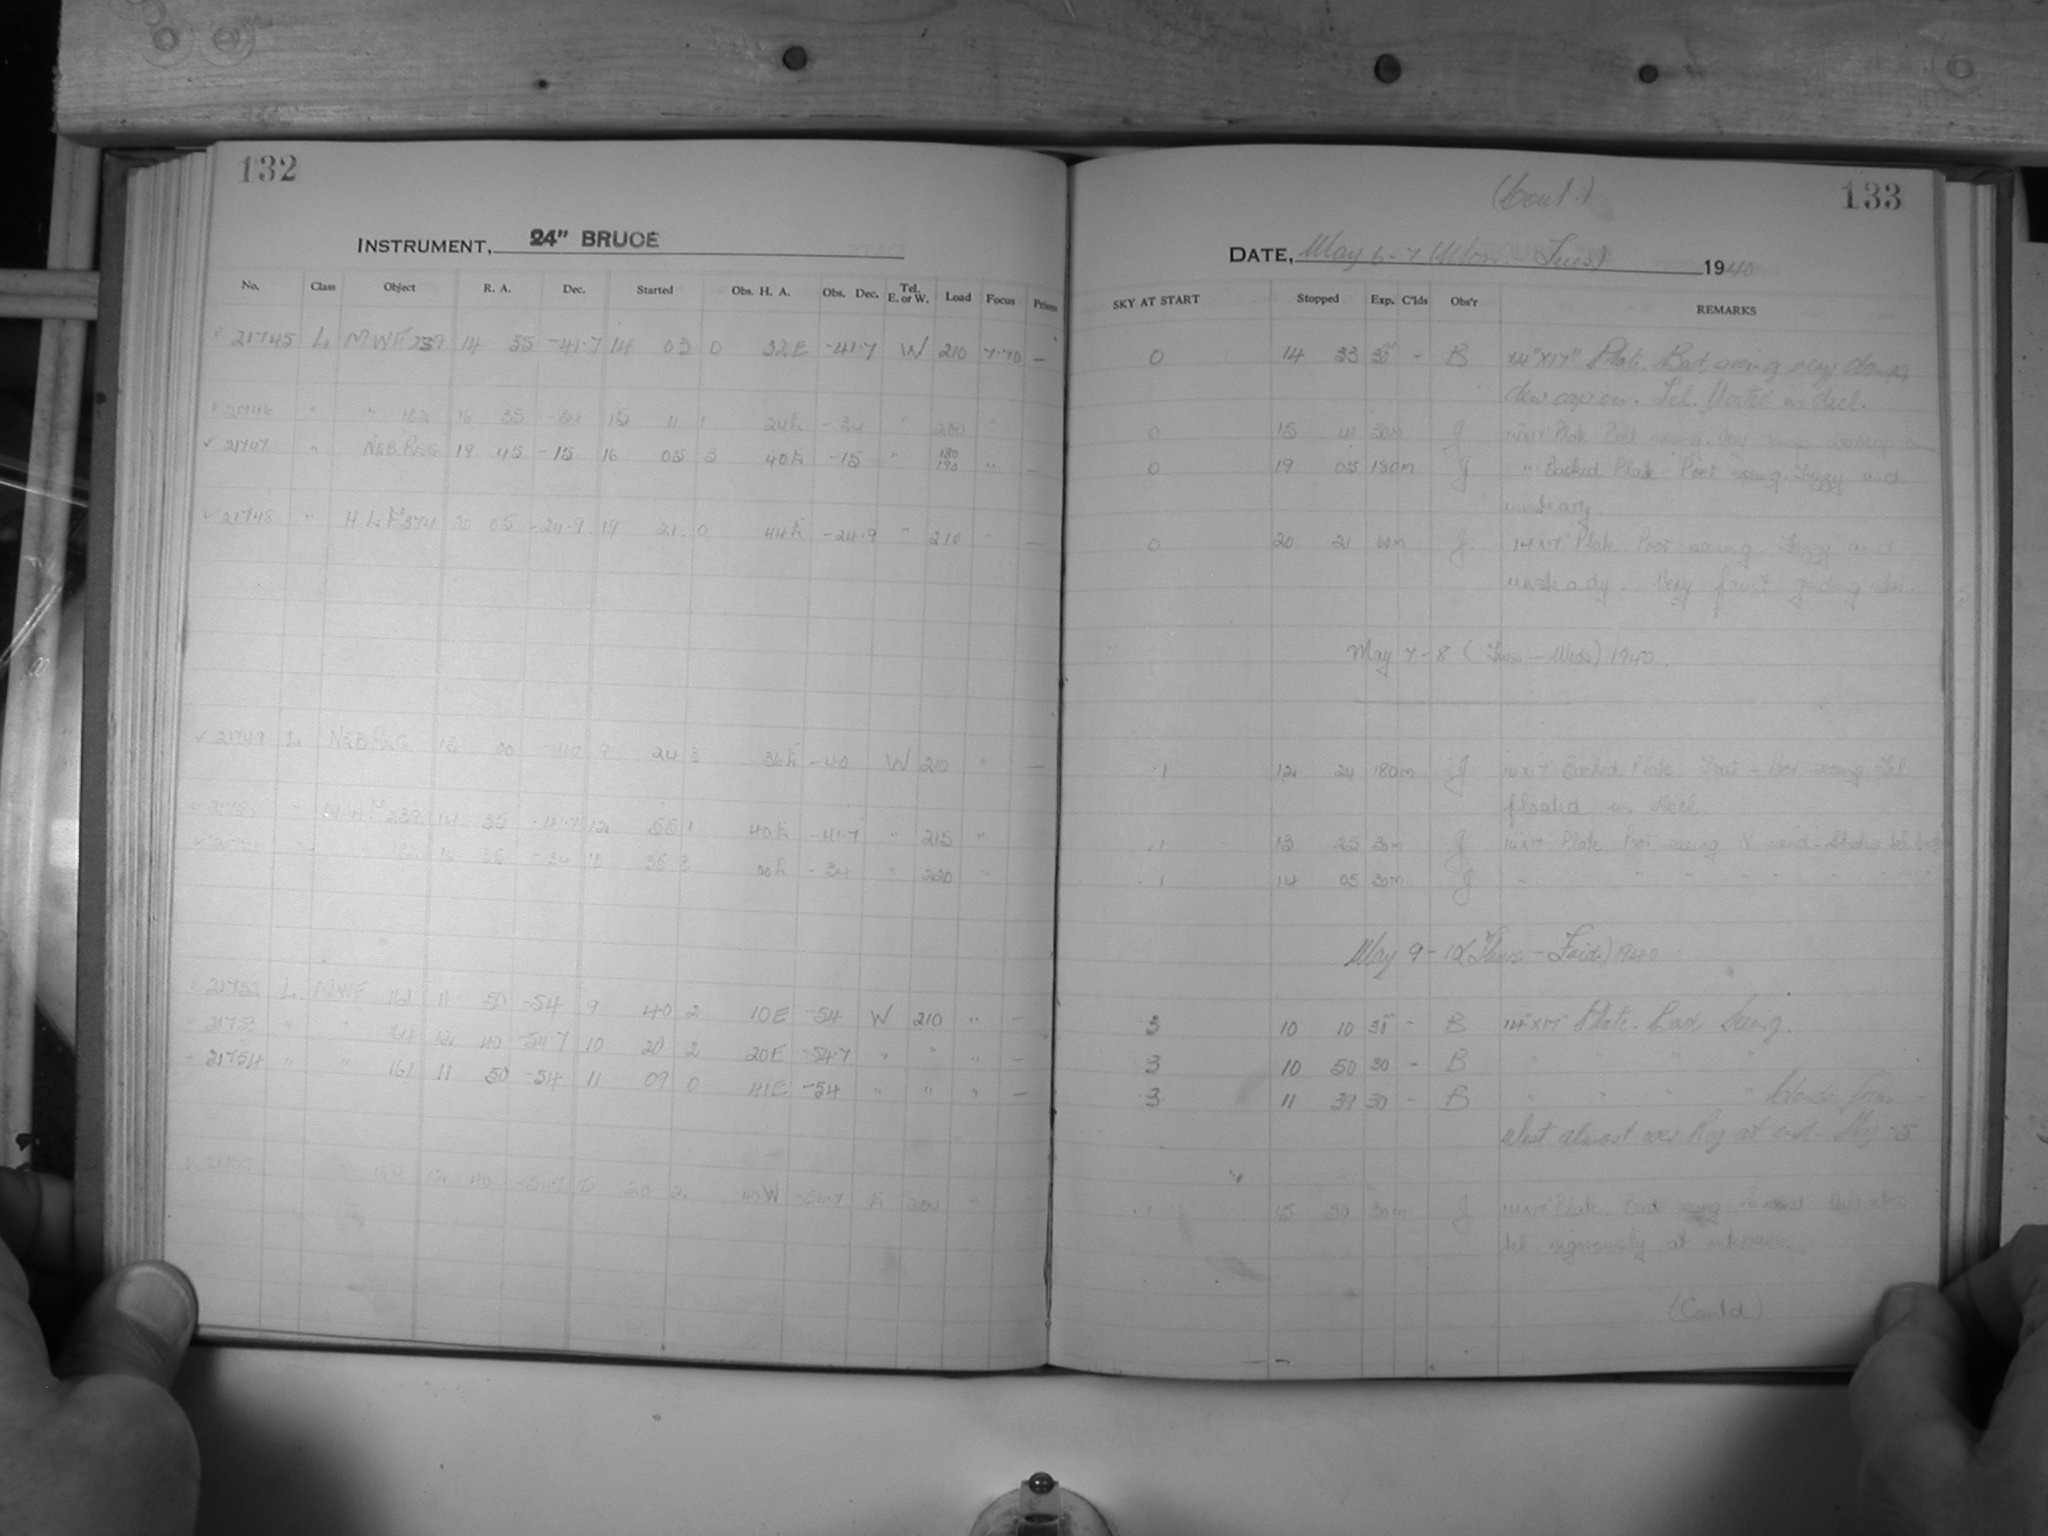 132
INSTRUMENT, 24" BRUCE
No. Class Object R. A. Dec. Started Obs. H. A. Obs. Dec. Tel. E. or W. Load Focus Prisms
21745 L MWF 239 14 35 -41.7 14 03 0 32E -41.7 W 210 7.70 —
21746 " " 182 16 35 -34 15 11 1 24E -34 " 200 "
✓ 21747 " NEB.REG 19 45 -15 16 05 3 40E -15 " 180 190 " —
✓ 21748 " HLF 374 20 05 -24.9 19 21 0 44E -24.9 " 210 " —
✓ 21749 L NEB.REG 13 00 -40 9 24 3 36E -40 W 210 " —
239 14 35 -41.7 12 55 1 40E -41.7 " 215 "
182 16 35 -34 13 35 3 -34 " 220 "
21752 L MWF 161 11 50 -54 9 40 2 10E -54 W 210 " —
21753 " " 164 12 40 -54.7 10 20 2 20E -54.7 " " " —
21754 " " 161 11 50 -54 11 09 0 41E -54 " " " —
164 12 40 -54.7 15 20 2 W -54.7 E 200 "
(Cont.) 133
DATE, May 6-7 (Mon - Tues) 1940
SKY AT START Stopped Exp. C'lds Obs'r REMARKS
0 14 33 30 - B 14"x17" Plate. Bad seeing very damp
dew cap on. Tel. floated in decl.
0 15 41 30m J 14x17 Plate Bad seeing. Very damp. Dewcap on
0 19 05 180m J " Backed Plate. Poor seeing. Fuzzy and
unsteady.
0 20 21 60m J. 14x17 Plate Poor seeing Fuzzy and
unsteady. Very faint guiding star.
May 7-8 (Tues - Weds) 1940.
1 12 24 180m J 14x17 Backed Plate. Fair - Poor seeing Tel
floated in Decl.
1 13 25 30m J 14x17 Plate Poor seeing & wind. Shakes tel.
1 14 05 30m J " " " " " "
May 9-10 (Thurs - Frid.) 1940
3 10 10 30 - B 14"x17" Plate. Bad Seeing.
3 10 50 30 - B " " " "
3 11 39 30 - B " " " " Clouds from
West almost over Reg at end. Sky -5
1 15 50 30m J 14x17 Plate. Bad seeing.
tel vigorously at intervals.
(Contd)